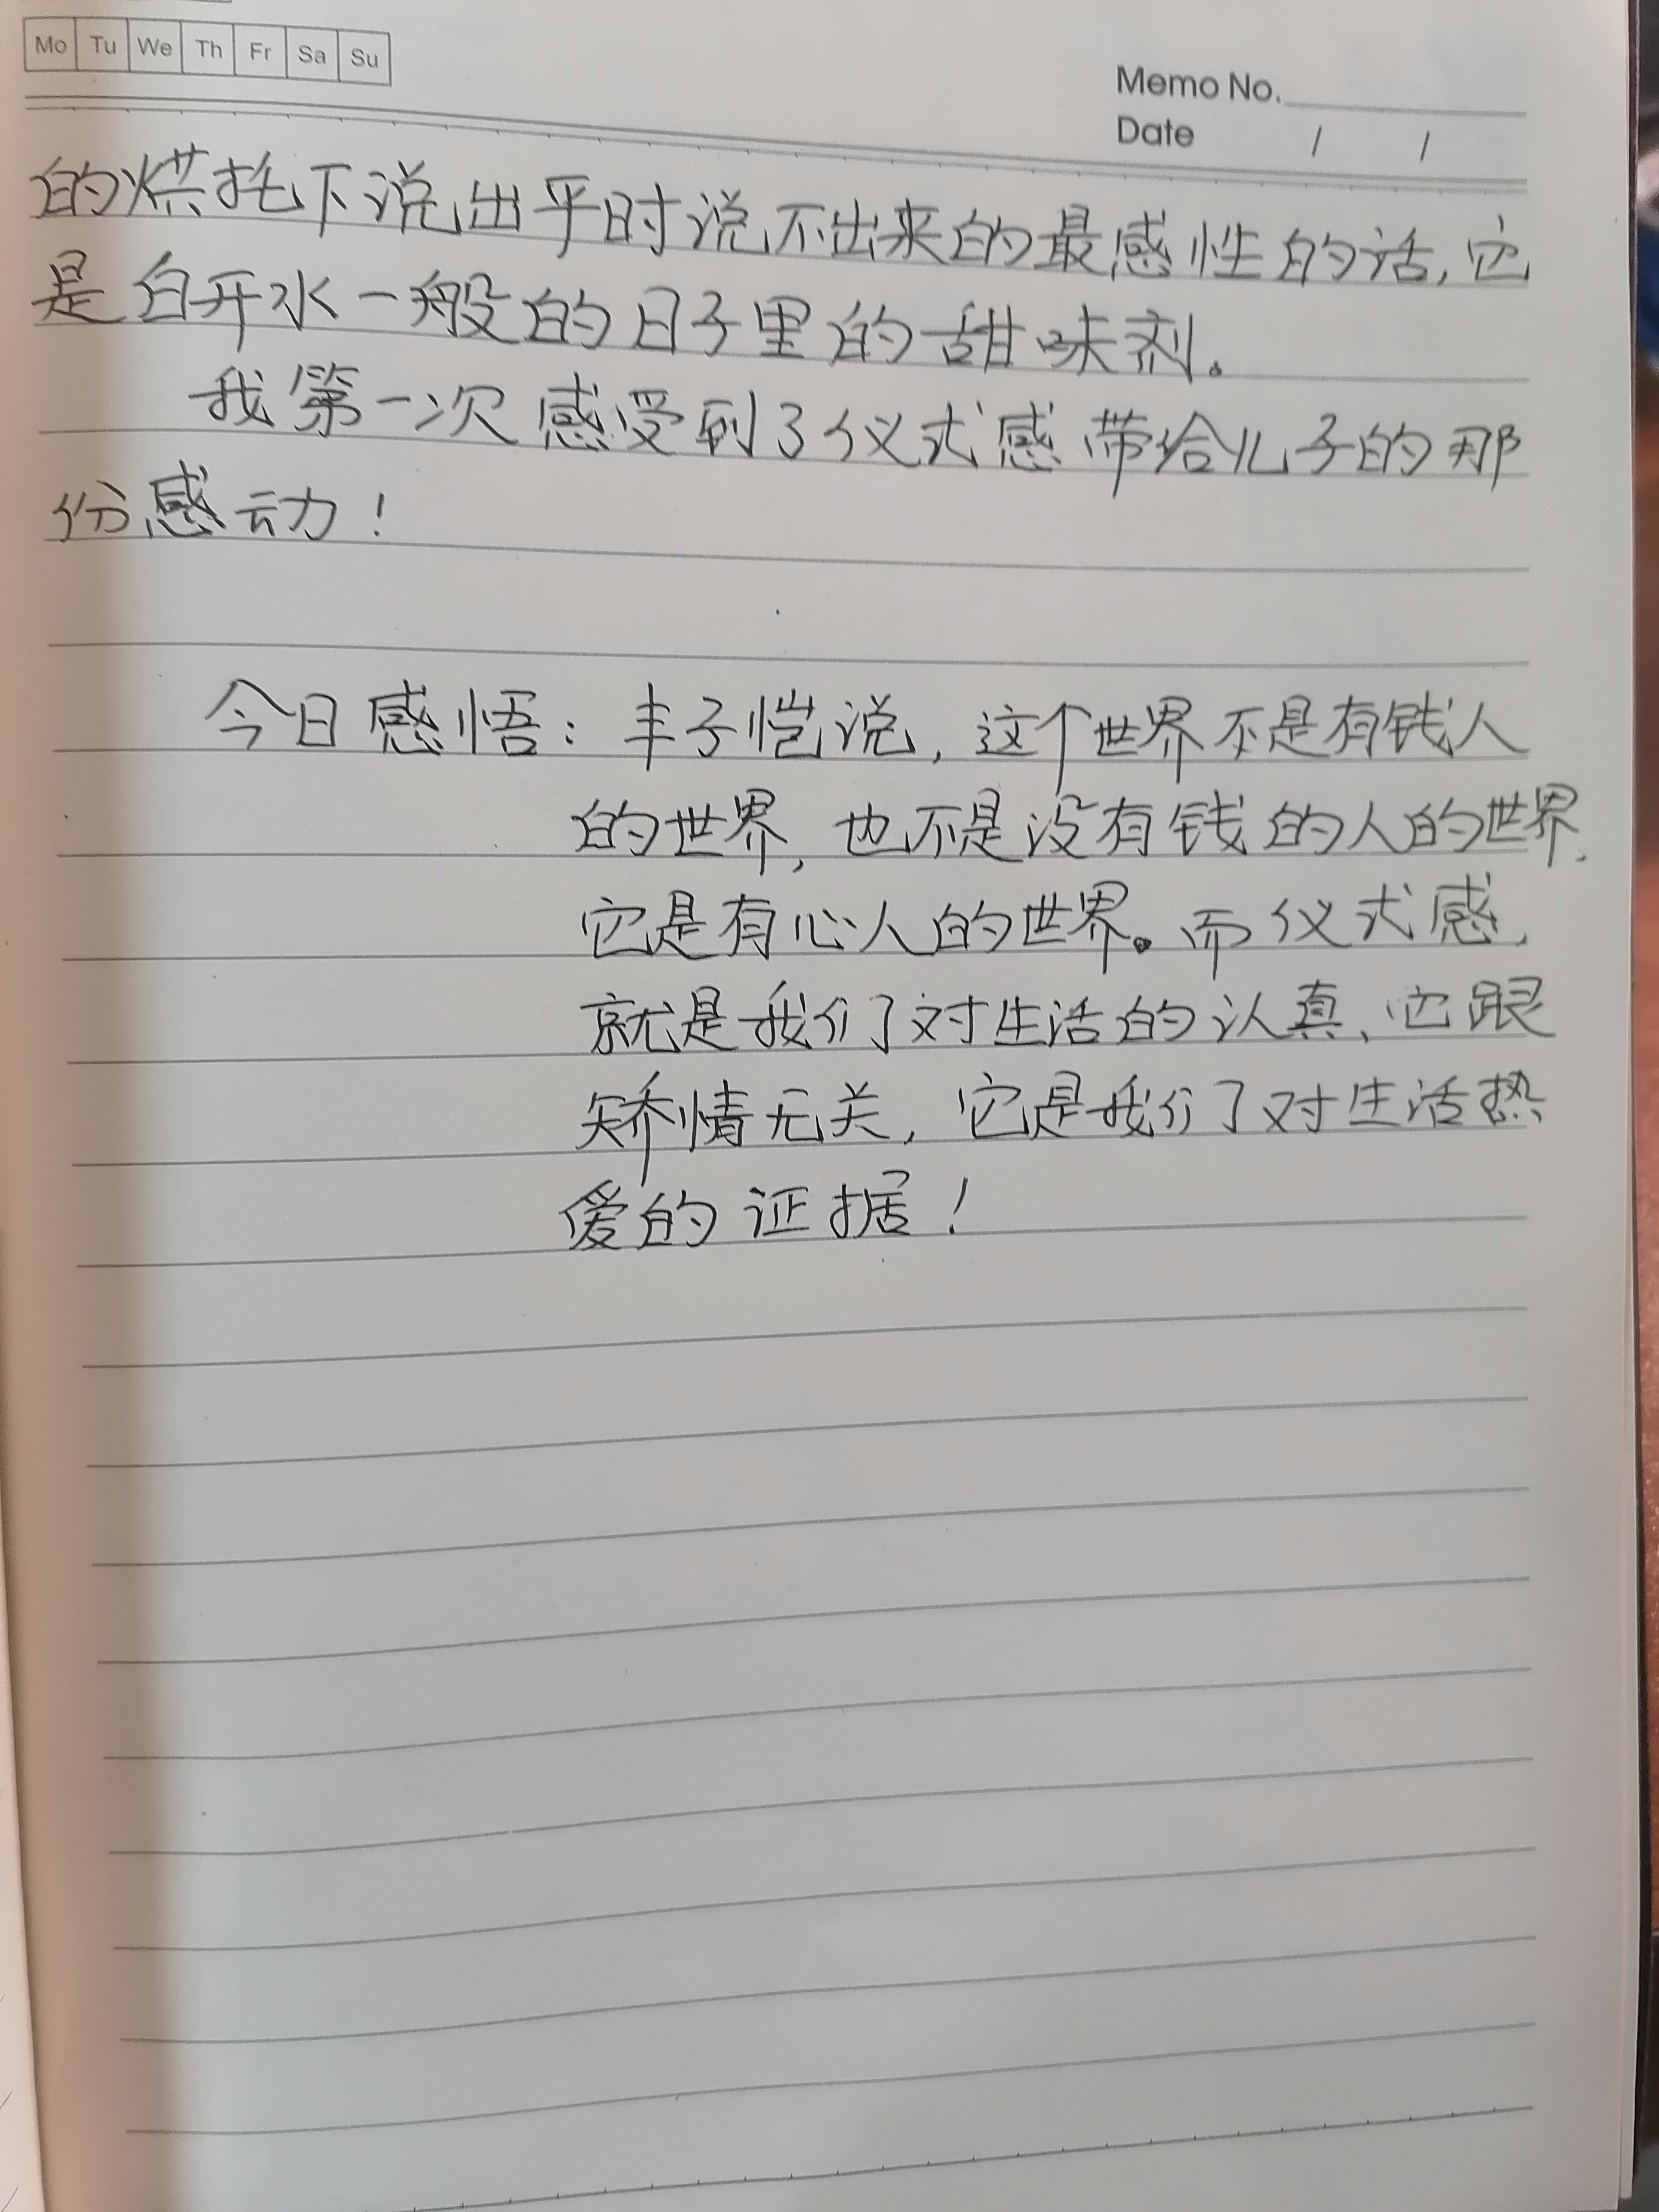 Mo Tu We Th Fr Sa Su
Memo No.
Date / /
的烘托下说出平时说不出来的最感性的话,它
是白开水一般的日子里的甜味剂。
我第一次感受到了仪式感带给儿子的那
份感动!
今日感悟:丰子恺说,这个世界不是有钱人
的世界,也不是没有钱的人的世界,
它是有心人的世界。而仪式感,
就是我们了对生活的认真、它跟
矫情无关,它是我们了对生活热
爱的证据!